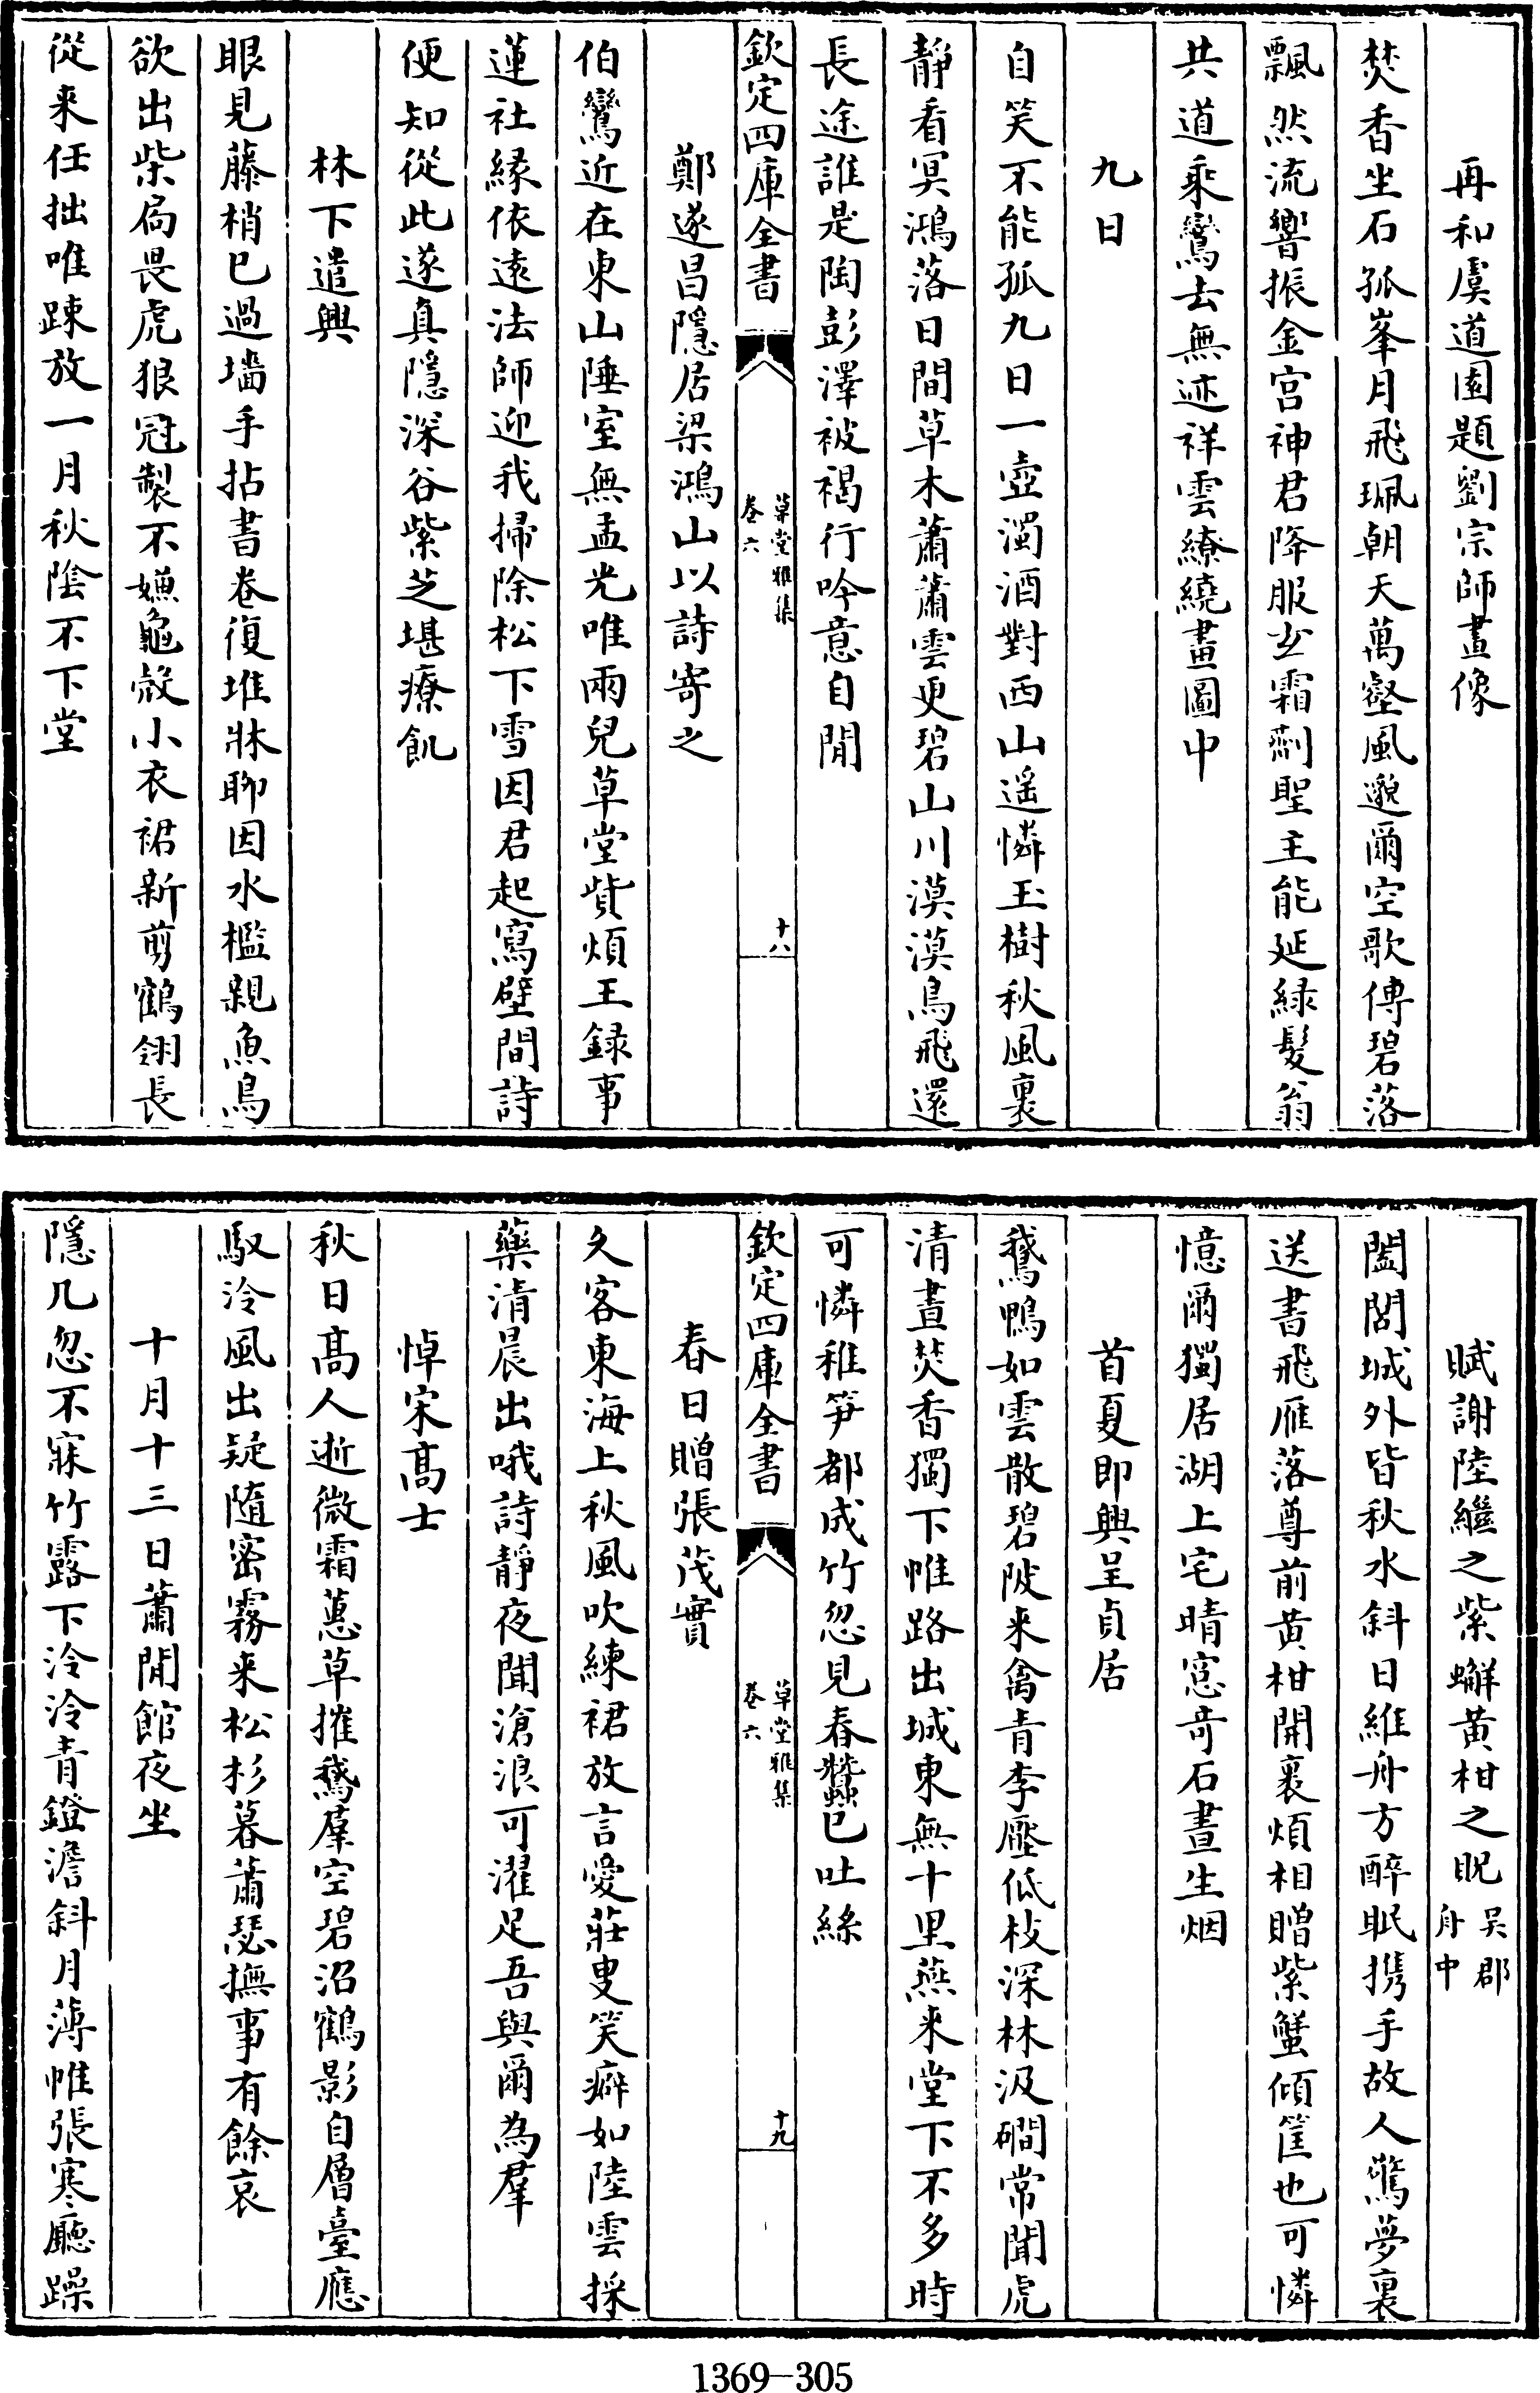 再和虞道園題劉宗師畫像
焚香坐石孤峯月飛珮朝天萬壑風邈爾空歌傳碧落
飄然流響振金宫神君降服玄霜劑聖主能延緑髮翁
共道乘鸞去無迹祥雲繚繞畫圖中
九日
自笑不能孤九日一壺濁酒對西山遥憐玉樹秋風裏
靜看冥鴻落日間草木蕭蕭雲更碧山川漠漠鳥飛還
長途誰是陶彭澤被褐行吟意自閒
欽定四庫全書
草堂雅集
卷六
十八
鄭遂昌隱居梁鴻山以詩寄之
伯鸞近在東山陲室無孟光唯兩兒草堂貲煩王録事
蓮社縁依逺法師迎我掃除松下雪因君起寫壁間詩
便知從此遂真隱深谷紫芝堪療飢
林下遣興
眼見藤梢已過墻手拈書卷復堆牀聊因水檻親魚鳥
欲出柴扃畏虎狼冠製不嫌龜殻小衣裙新剪鶴翎長
從来任拙唯踈放一月秋陰不下堂
賦謝陸繼之紫蠏黄柑之貺
吴郡
舟中
闔閭城外皆秋水斜日維舟方醉眠携手故人驚夢裏
送書飛雁落尊前黄柑開裹煩相贈紫蟹傾筐也可憐
憶爾獨居湖上宅晴窓奇石晝生烟
首夏即興呈貞居
鵞鴨如雲散碧陂来禽青李壓低枝深林汲磵常聞虎
清晝焚香獨下帷路出城東無十里燕来堂下不多時
可憐稚笋都成竹忽見春蠶已吐絲
欽定四庫全書
草堂雅集
卷六
十九
春日贈張茂實
久客東海上秋風吹練裙放言愛莊叟笑癖如陸雲採
藥清晨出哦詩靜夜聞滄浪可濯足吾與爾為羣
悼宋髙士
秋日髙人逝微霜蕙草摧鵞羣空碧沼鶴影自層臺應
馭泠風出疑隨密霧来松杉暮蕭瑟撫事有餘哀
十月十三日蕭閒館夜坐
隱几忽不寐竹露下泠泠青鐙澹斜月薄帷張寒廳躁
1369-305